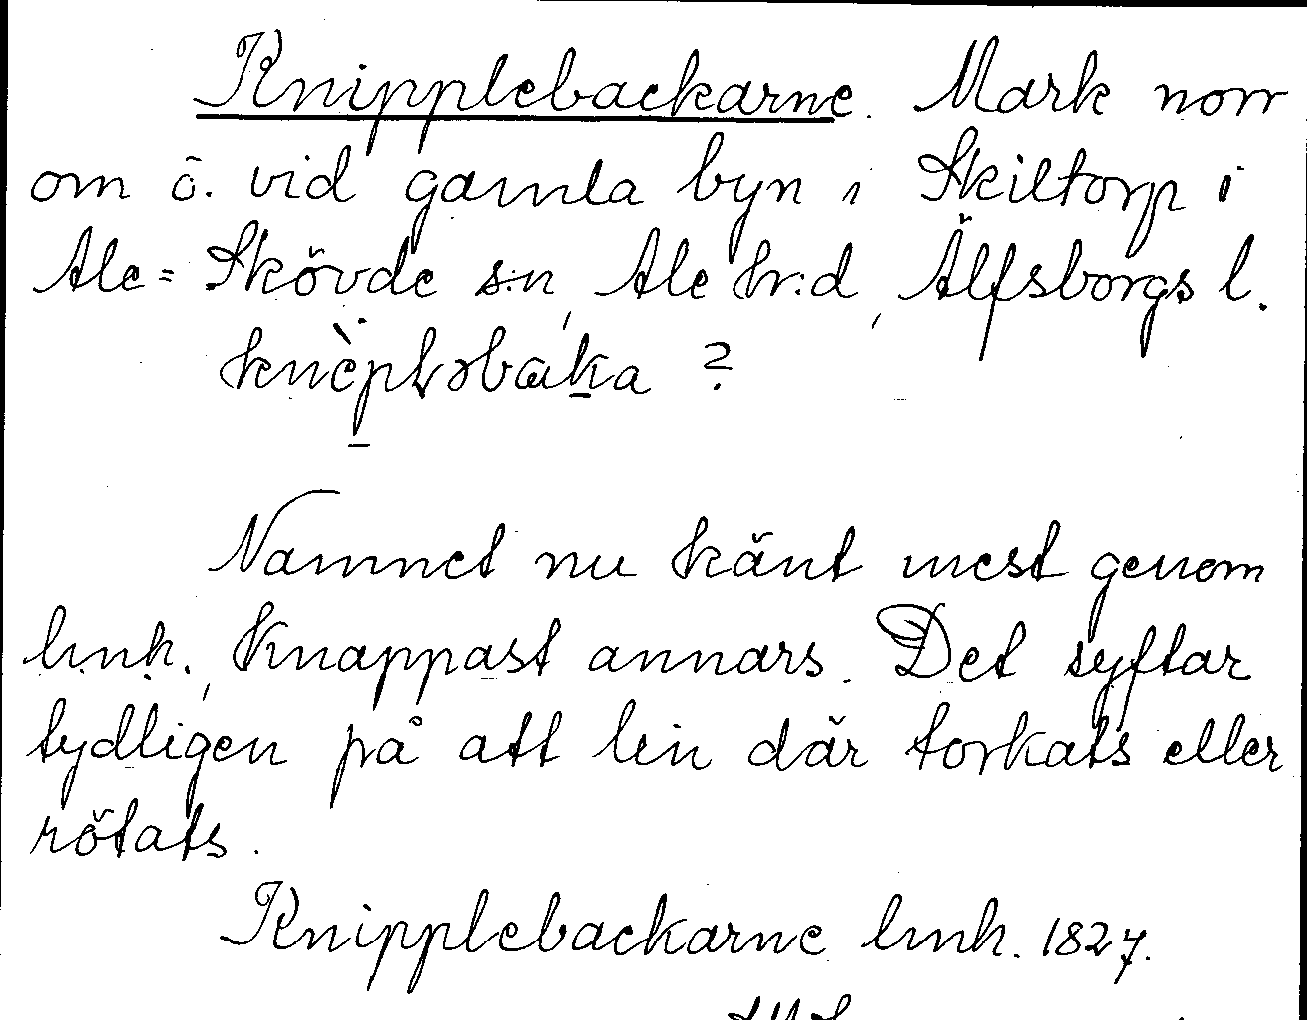 Knipplebackarne. Mark norr
om ö. vid gamla byn i Skiltorp i
Ale=Skövde s:n, Ale hr:d, Älfsborgs l.
?
Namnet nu känt mest genom
lmh., knappast annars. Det syftar
tydligen på att lin där torkats eller
rötats.
Knipplebackarne lmh. 1827.